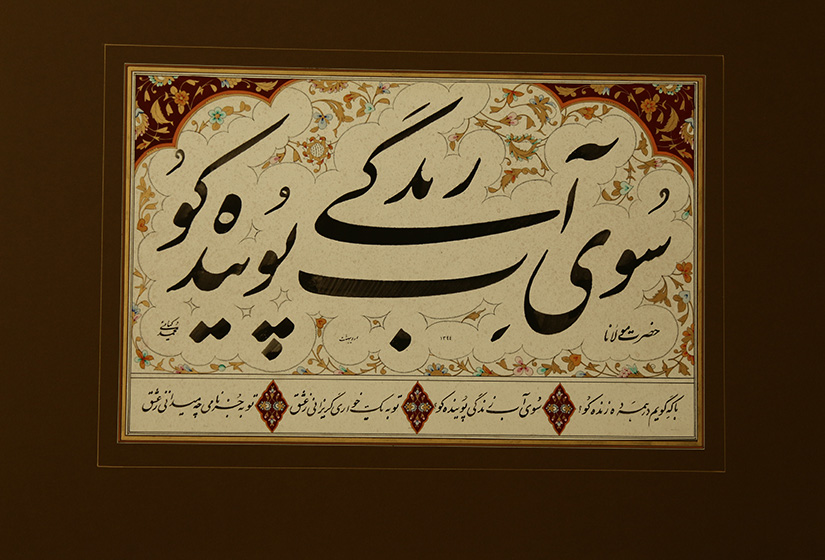 سُوی آب زندگی پُوینده کو
حضرت مولانا
۱۳۹۴
اردیبهشت
با که گویم در همه ده زنده کو
سُوی آب زندگی پُوینده کو
تو به یک خواری گریزانی ز عشق
تو به جُز نامی چه میدانی ز عشق